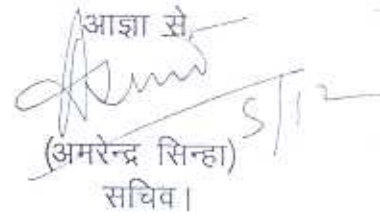 आज्ञा से,
5/12
(अमरेन्द्र सिन्हा)
सचिव।